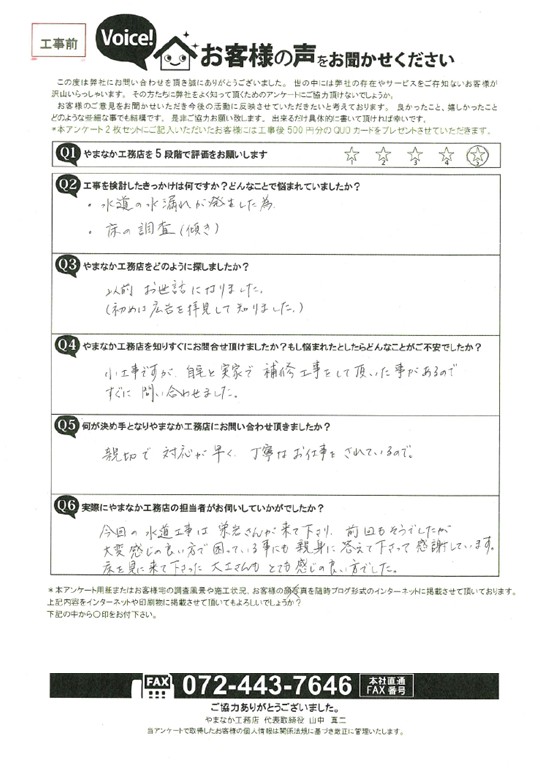 工事前
Voice!
お客様の声をお聞かせください
この度は弊社にお問い合わせを頂き誠にありがとうございました。 世の中には弊社の存在やサービスをご存知ないお客様が
沢山いらっしゃいます。 その方たちに弊社をよく知って頂くためのアンケートにご協力頂けないでしょうか。
お客様のご意見をお聞かせいただき今後の活動に反映させていただきたいと考えております。 良かったこと、嬉しかったこと
どのような些細な事でも結構です。 是非ご協力お願い致します。 出来るだけ具体的に書いて頂ければ幸いです。
*本アンケート2枚セットにご記入いただいたお客様には工事後500円分のQUOカードをプレゼントさせていただきます。
Q1 やまなか工務店を5段階で評価をお願いします
1 2 3 4 5
Q2 工事を検討したきっかけは何ですか?どんなことで悩まれていましたか?
・水道の水漏れが発生した為
・床の調査(傾き)
Q3 やまなか工務店をどのように探しましたか?
以前 お世話になりました。
(初めは広告を拝見して知りました。)
Q4 やまなか工務店を知りすぐにお問合せ頂けましたか?もし悩まれたとしたらどんなことがご不安でしたか?
小工事ですが、自宅と実家で 補修工事をして頂いた事があるので
すぐに 問い合わせました。
Q5 何が決め手となりやまなか工務店にお問い合わせ頂きましたか?
親切で 対応が早く、丁寧なお仕事をされているので。
Q6 実際にやまなか工務店の担当者がお伺いしていかがでしたか?
今回の水道工事は 栄岩さんが来て下さり、前回もそうでしたが
大変感じの良い方で困っている事にも親身に答えて下さって感謝しています。
床を見に来て下さった 大工さんも とても感じの良い方でした。
*本アンケート用紙またはお客様宅の調査風景や施工状況、お客様の顔写真を随時ブログ形式のインターネットに掲載させて頂いております。
上記内容をインターネットや印刷物に掲載させて頂いてもよろしいでしょうか?
下記の中から〇印をお付下さい。
FAX 072-443-7646 本社直通 FAX番号
ご協力ありがとうございました。
やまなか工務店 代表取締役 山中 真二
当アンケートで取得したお客様の個人情報は関係法規に基づき厳正に管理いたします。